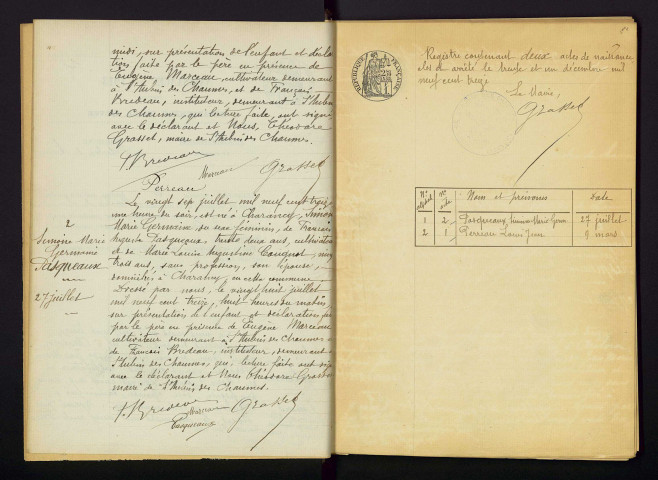 midi, sur présentation de l'enfant et décla
tion faite par le père en présence de
Eugène Marceau, cultivateur demeurant
à St Aubin des Chaumes, et de François
Bredeau, instituteur, demeurant à St Aubin
des Chaumes, qui, lecture faite, ont signé
avec le déclarant et Nous, Théodore
Grasset, maire de St Aubin des Chaumes.
F. Bredeau Marceau Grasset
Perreau
2
Simone Marie
Germaine
Pasqueaux
27 juillet
Le vingt sept juillet, mil neuf cent treize,
une heure du soir, est née à Charancy, Simone
Marie Germaine du sexe féminin, de François
Auguste Pasqueaux, trente deux ans, cultivateur
et de Marie Louise Augustine
trois ans, sans profession, son épouse,
domiciliés à Charancy, en cette commune
Dressé par nous, le vingt huit juillet
mil neuf cent treize, huit heures du matin
sur présentation de l'enfant et déclaration
par le père en présence de Eugène Marceau
cultivateur demeurant à St Aubin des Chaumes
de François Bredeau, instituteur, demeurant
St Aubin des Chaumes, qui, lecture faite ont
avec le déclarant et Nous Théodore Grasset
maire de St Aubin des Chaumes.
F. Bredeau Marceau Grasset
Pasqueaux
RÉPUBLIQUE FRANÇAISE
Registre contenant deux actes de naissance
clos et arrêté le trente et un décembre mil
neuf cent treize
Le Maire,
Grasset
Nos Nos Nom et prénoms Date
1 2 Pasqueaux, Simone Marie Germ. 27 juillet
2 1 Perreau Louis 9 mars